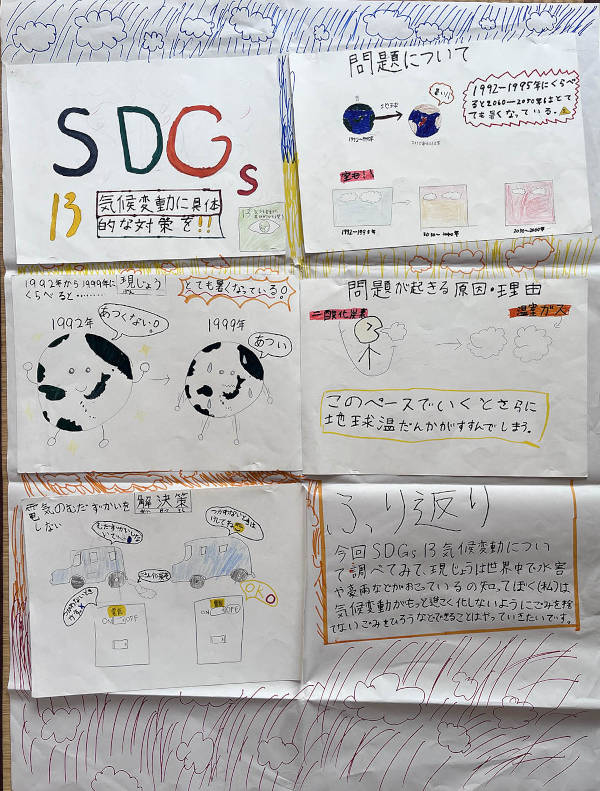 SDGs
13 気候変動に具体
的な対策を!!
問題について
地球
暑い!
1992~1995年にくらべ
ると2060~2050年はとて
ても暑くなっている。
1992~1995年
1992年から1999年に 現じょう
くらべると………
とても暑くなっている!
1992年
あつくない!
1999年
あつい
問題が起きる原因・理由
二酸化炭素
温室ガス
このペースでいくとさらに
地球温だんかがすすんでしまう。
電気のむだずかいを 解決策
しない
つかわないときは
けしてね
ON OFF
ON OFF
OKO
ふり返り
今回SDGs13気候変動につい
て調べてみて、現じょうは世界中で水害
や豪雨などがおこっているの知ってぼく(私)は
気候変動がもっと進こく化しないようにごみを捨
てないごみをひろうなどできることはやっていきたいです。